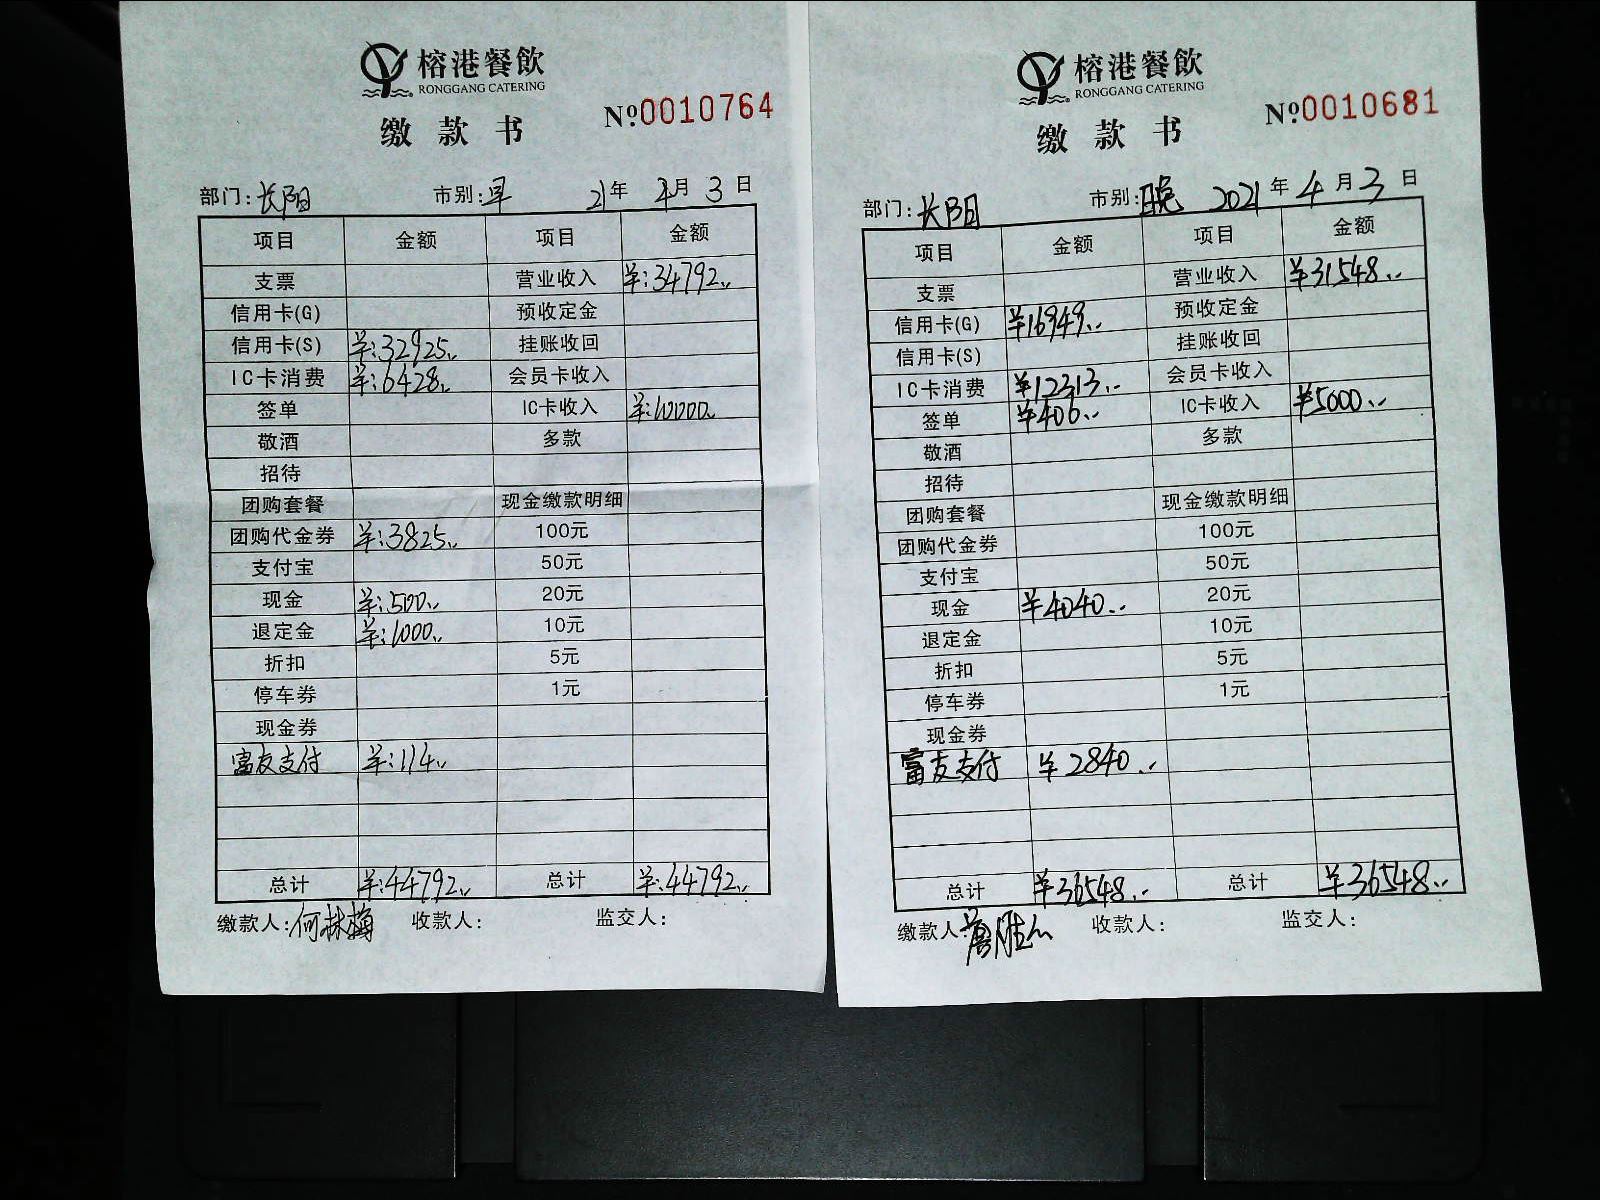 榕港餐飲
RONGGANG CATERING
缴款书
№0010764
部门:长阳 市别:早 21年 4月 3日
项目 金额 项目 金额
支票 营业收入 ¥:34792..
信用卡(G) 预收定金
信用卡(S) ¥:32925.. 挂账收回
IC卡消费 ¥:6428.. 会员卡收入
签单 IC卡收入 ¥:10000..
敬酒 多款
招待
团购套餐 现金缴款明细
团购代金券 ¥:3825.. 100元
支付宝 50元
现金 ¥:500.. 20元
退定金 ¥:1000.. 10元
折扣 5元
停车券 1元
现金券
富友支付 ¥:114..
总计 ¥:44792.. 总计 ¥:44792..
缴款人:何林梅 收款人: 监交人:
榕港餐飲
RONGGANG CATERING
缴款书
№0010681
部门:长阳 市别:晚 2021年 4月 3日
项目 金额 项目 金额
支票 营业收入 ¥31548..
信用卡(G) ¥16949.. 预收定金
信用卡(S) 挂账收回
IC卡消费 ¥12313.. 会员卡收入
签单 ¥406.. IC卡收入 ¥5000..
敬酒 多款
招待
团购套餐 现金缴款明细
团购代金券 100元
支付宝 50元
现金 ¥4040.. 20元
退定金 10元
折扣 5元
停车券 1元
现金券
富友支付 ¥2840..
总计 ¥36548.. 总计 ¥36548..
缴款人: 收款人: 监交人: